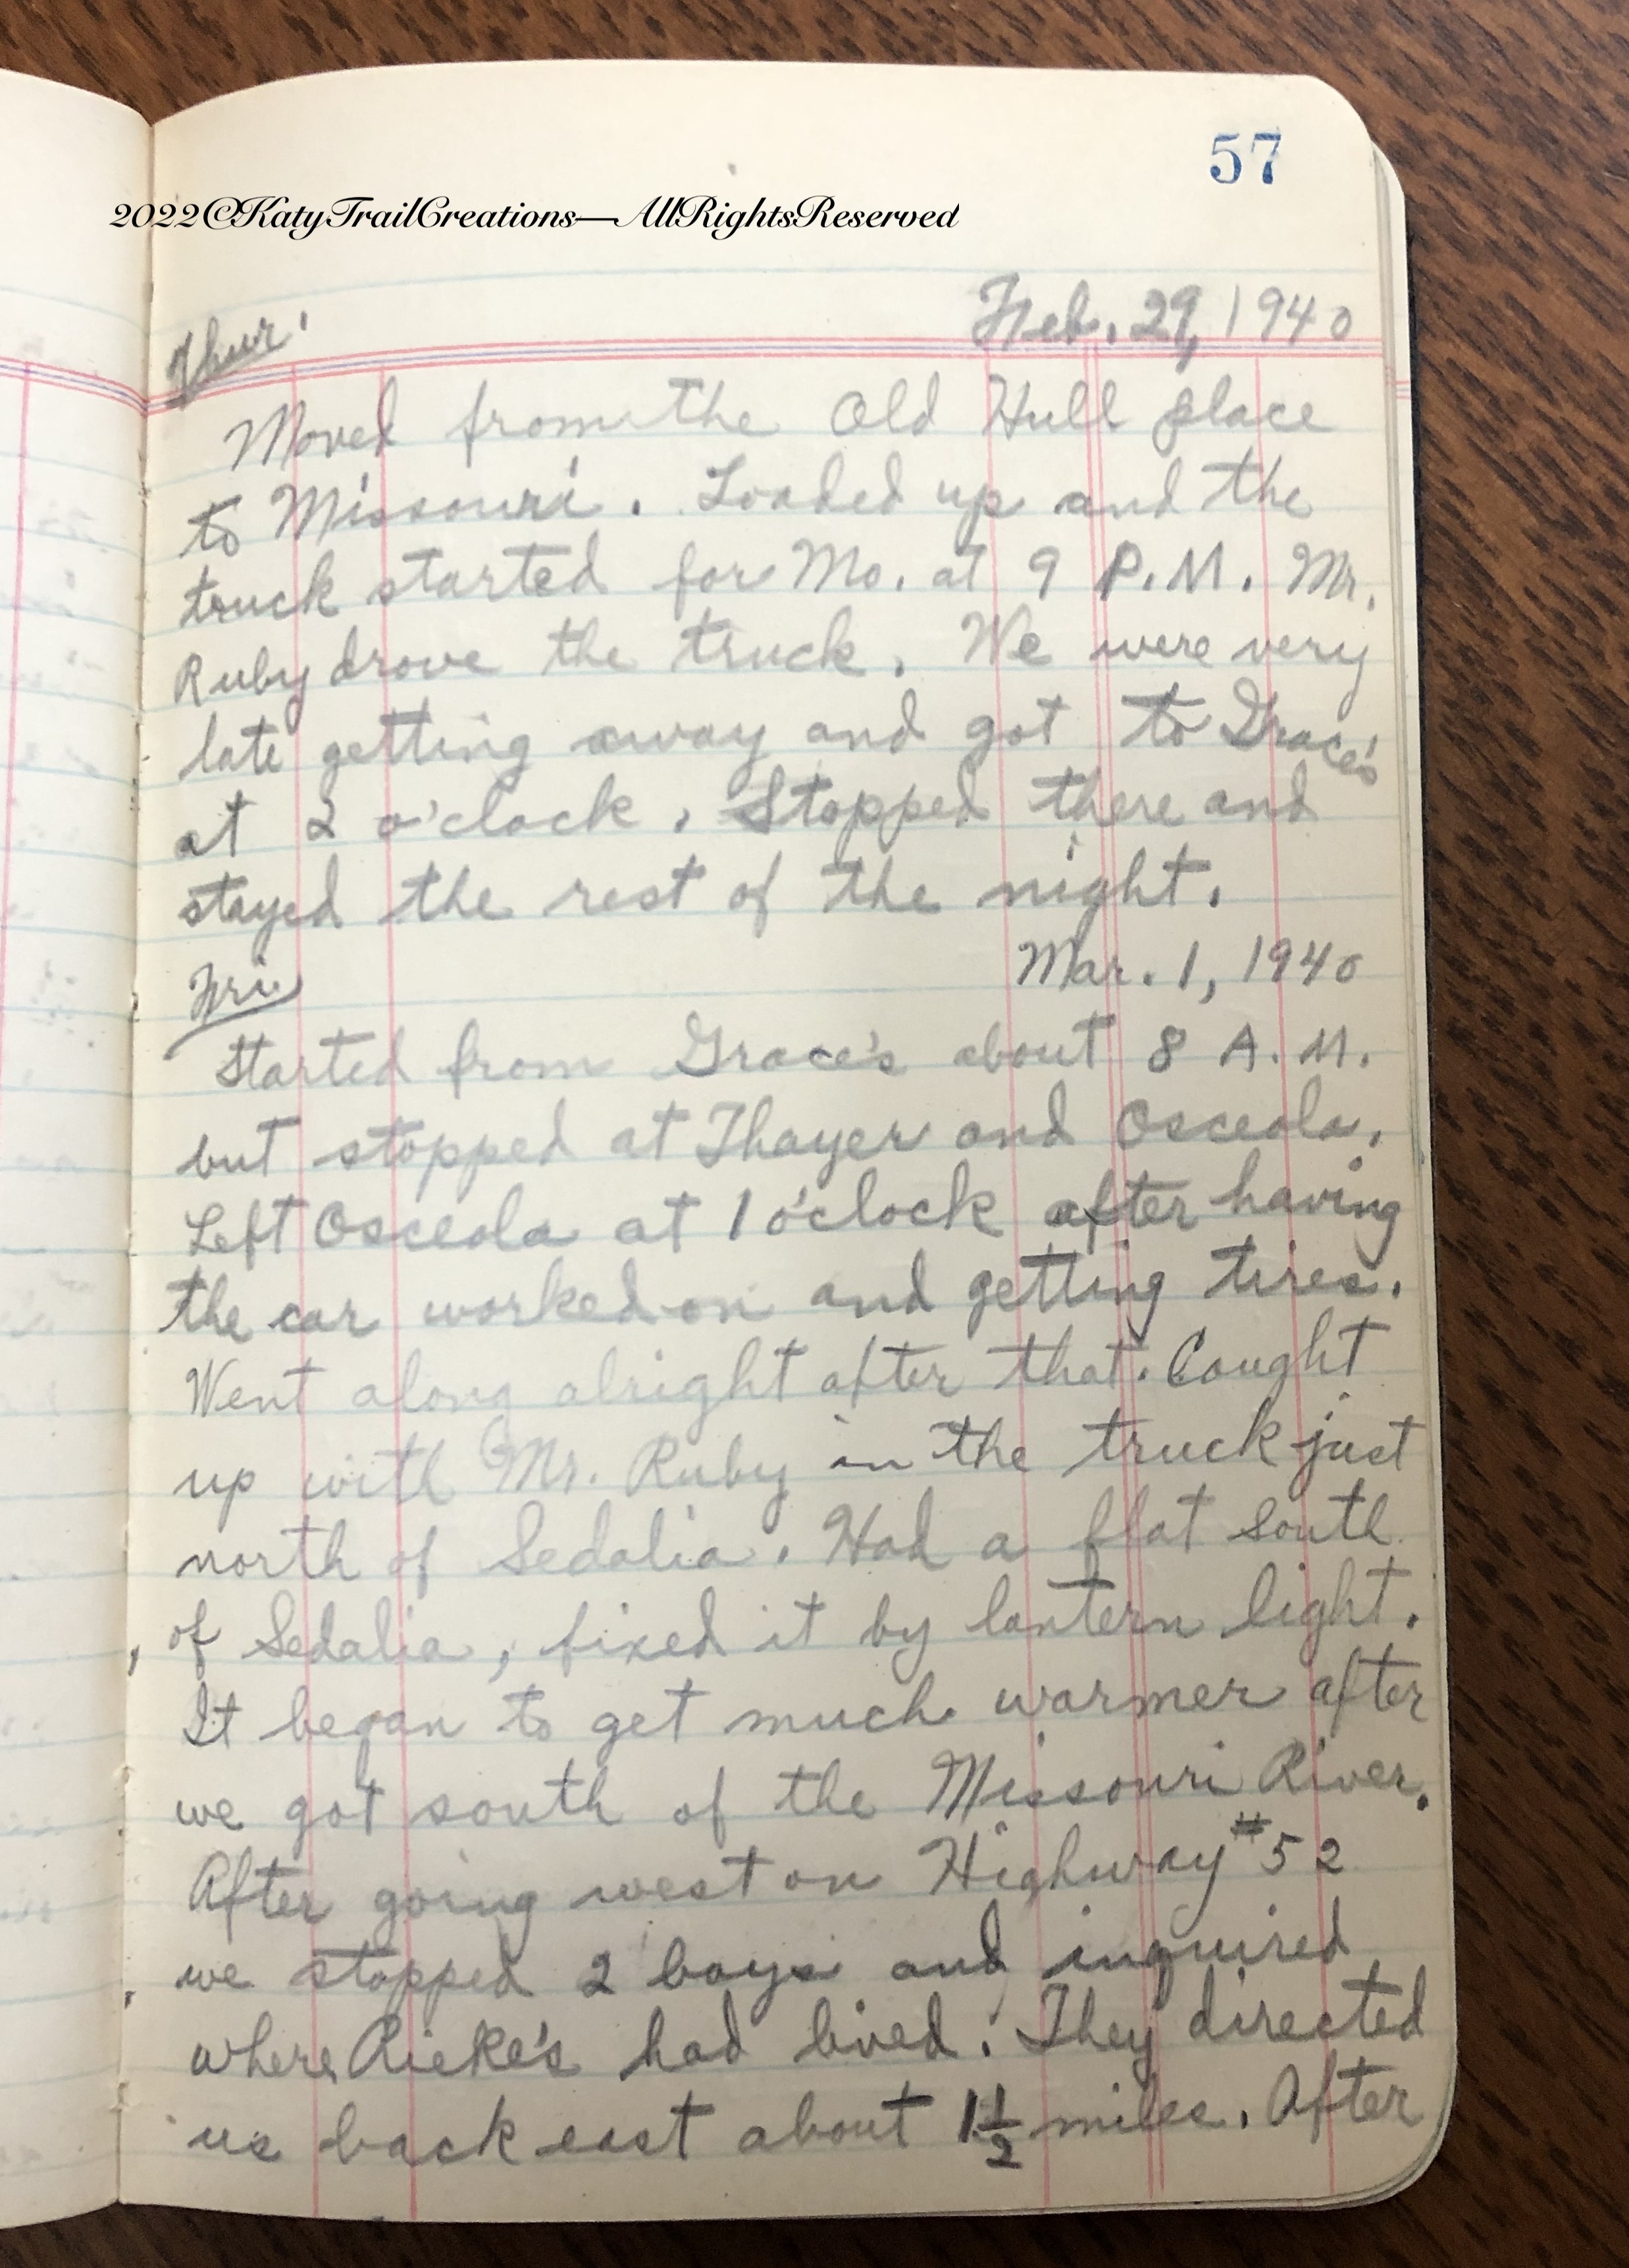 57
2022©KatyTrailCreations—AllRightsReserved
Feb. 29, 1940
Thur.
Moved from the Old Hull place
to Missouri. Loaded up and the
truck started for Mo. at 9 P.M. Mr.
Ruby drove the truck. We were very
late getting away and got to Grace's
at 2 o'clock. Stopped there and
stayed the rest of the night.
Mar. 1, 1940
Fri
Started from Grace's about 8 A.M.
but stopped at Thayer and Osceola.
Left Osceola at 1 o'clock after having
the car worked on and getting tires.
Went along alright after that. Caught
up with Mr. Ruby in the truck just
north of Sedalia. Had a flat south
of Sedalia, fixed it by lantern light.
It began to get much warmer after
we got south of the Missouri River.
After going west on Highway #52
we stopped 2 boys and inquired
where Rieke's had lived. They directed
us back east about 1 1/2 miles. After